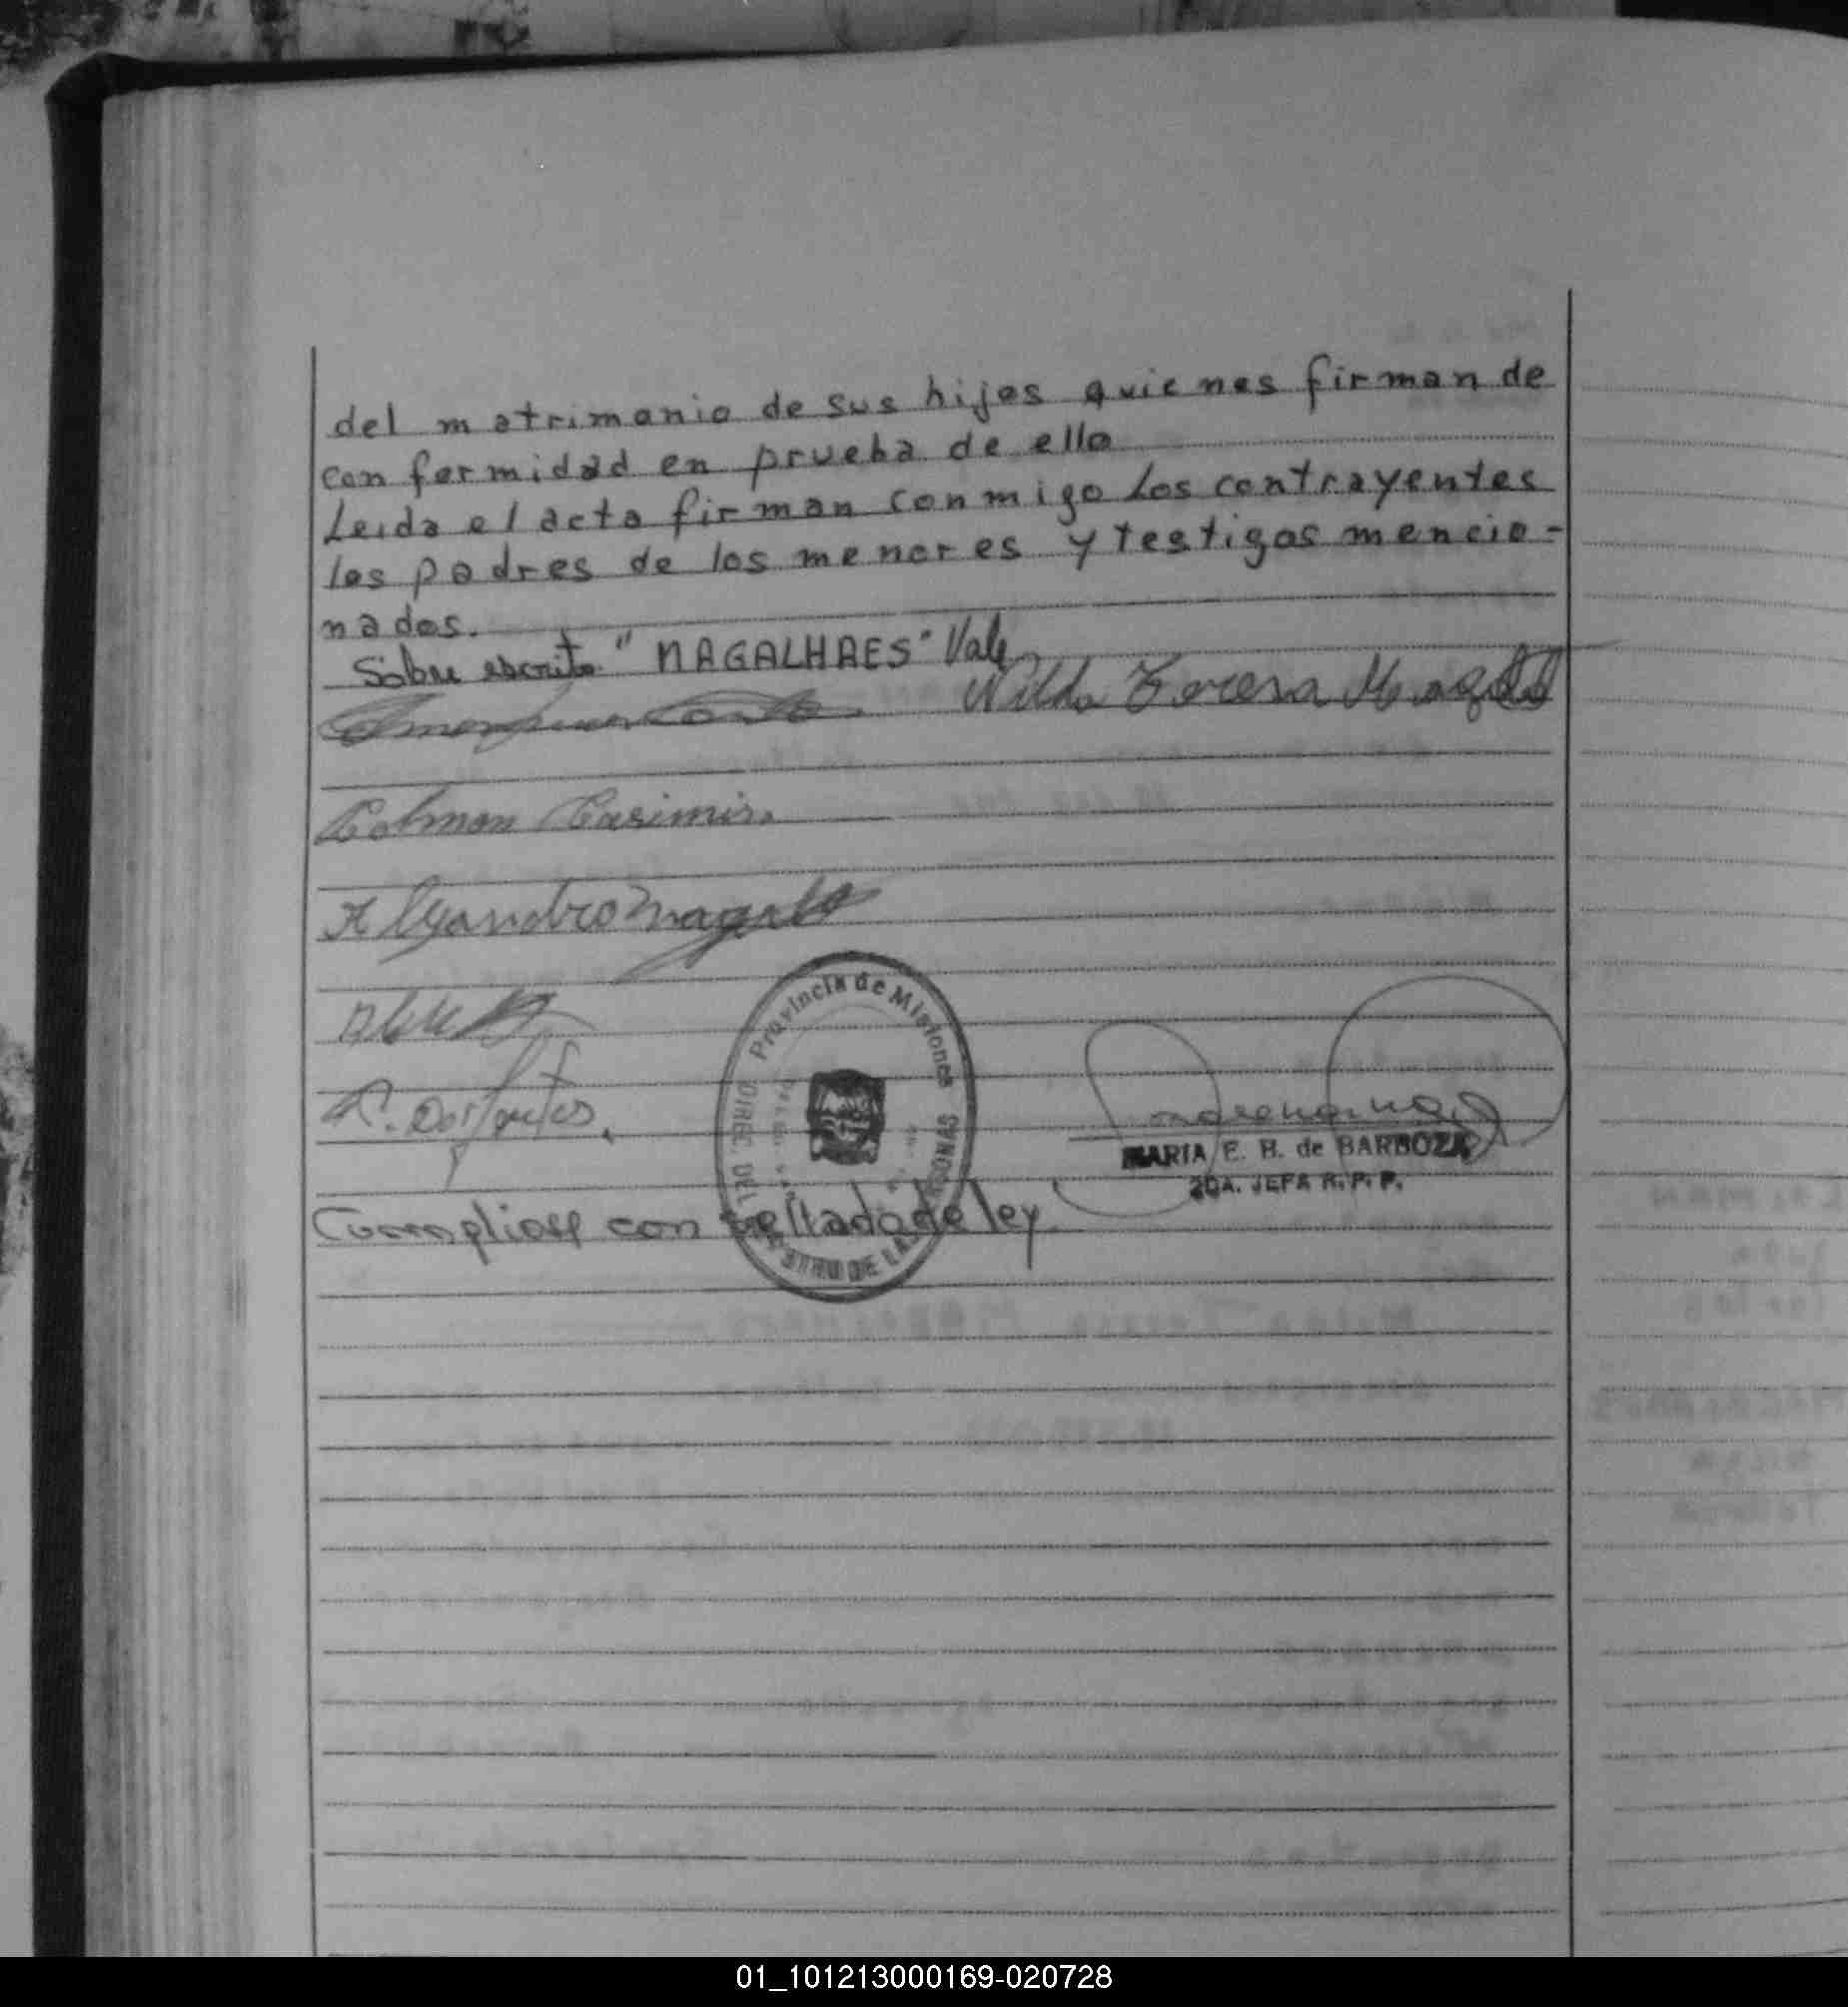 del matrimonio de sus hijos quienes firman de
conformidad en prueba de ello
Leida el acta firman conmigo los contrayentes
los padres de los menores y testigos mencio-
nados.
Sobre escrito "MAGALHAES" Vale
Nilda Teresa
Colman Casimiro
Alejandro
Provincia de Misiones
DIREC. DEL DE LAS
MARIA E. B. de BARBOZA
2DA. JEFA R. P. P.
Cumpliose con de ley
01_101213000169-020728